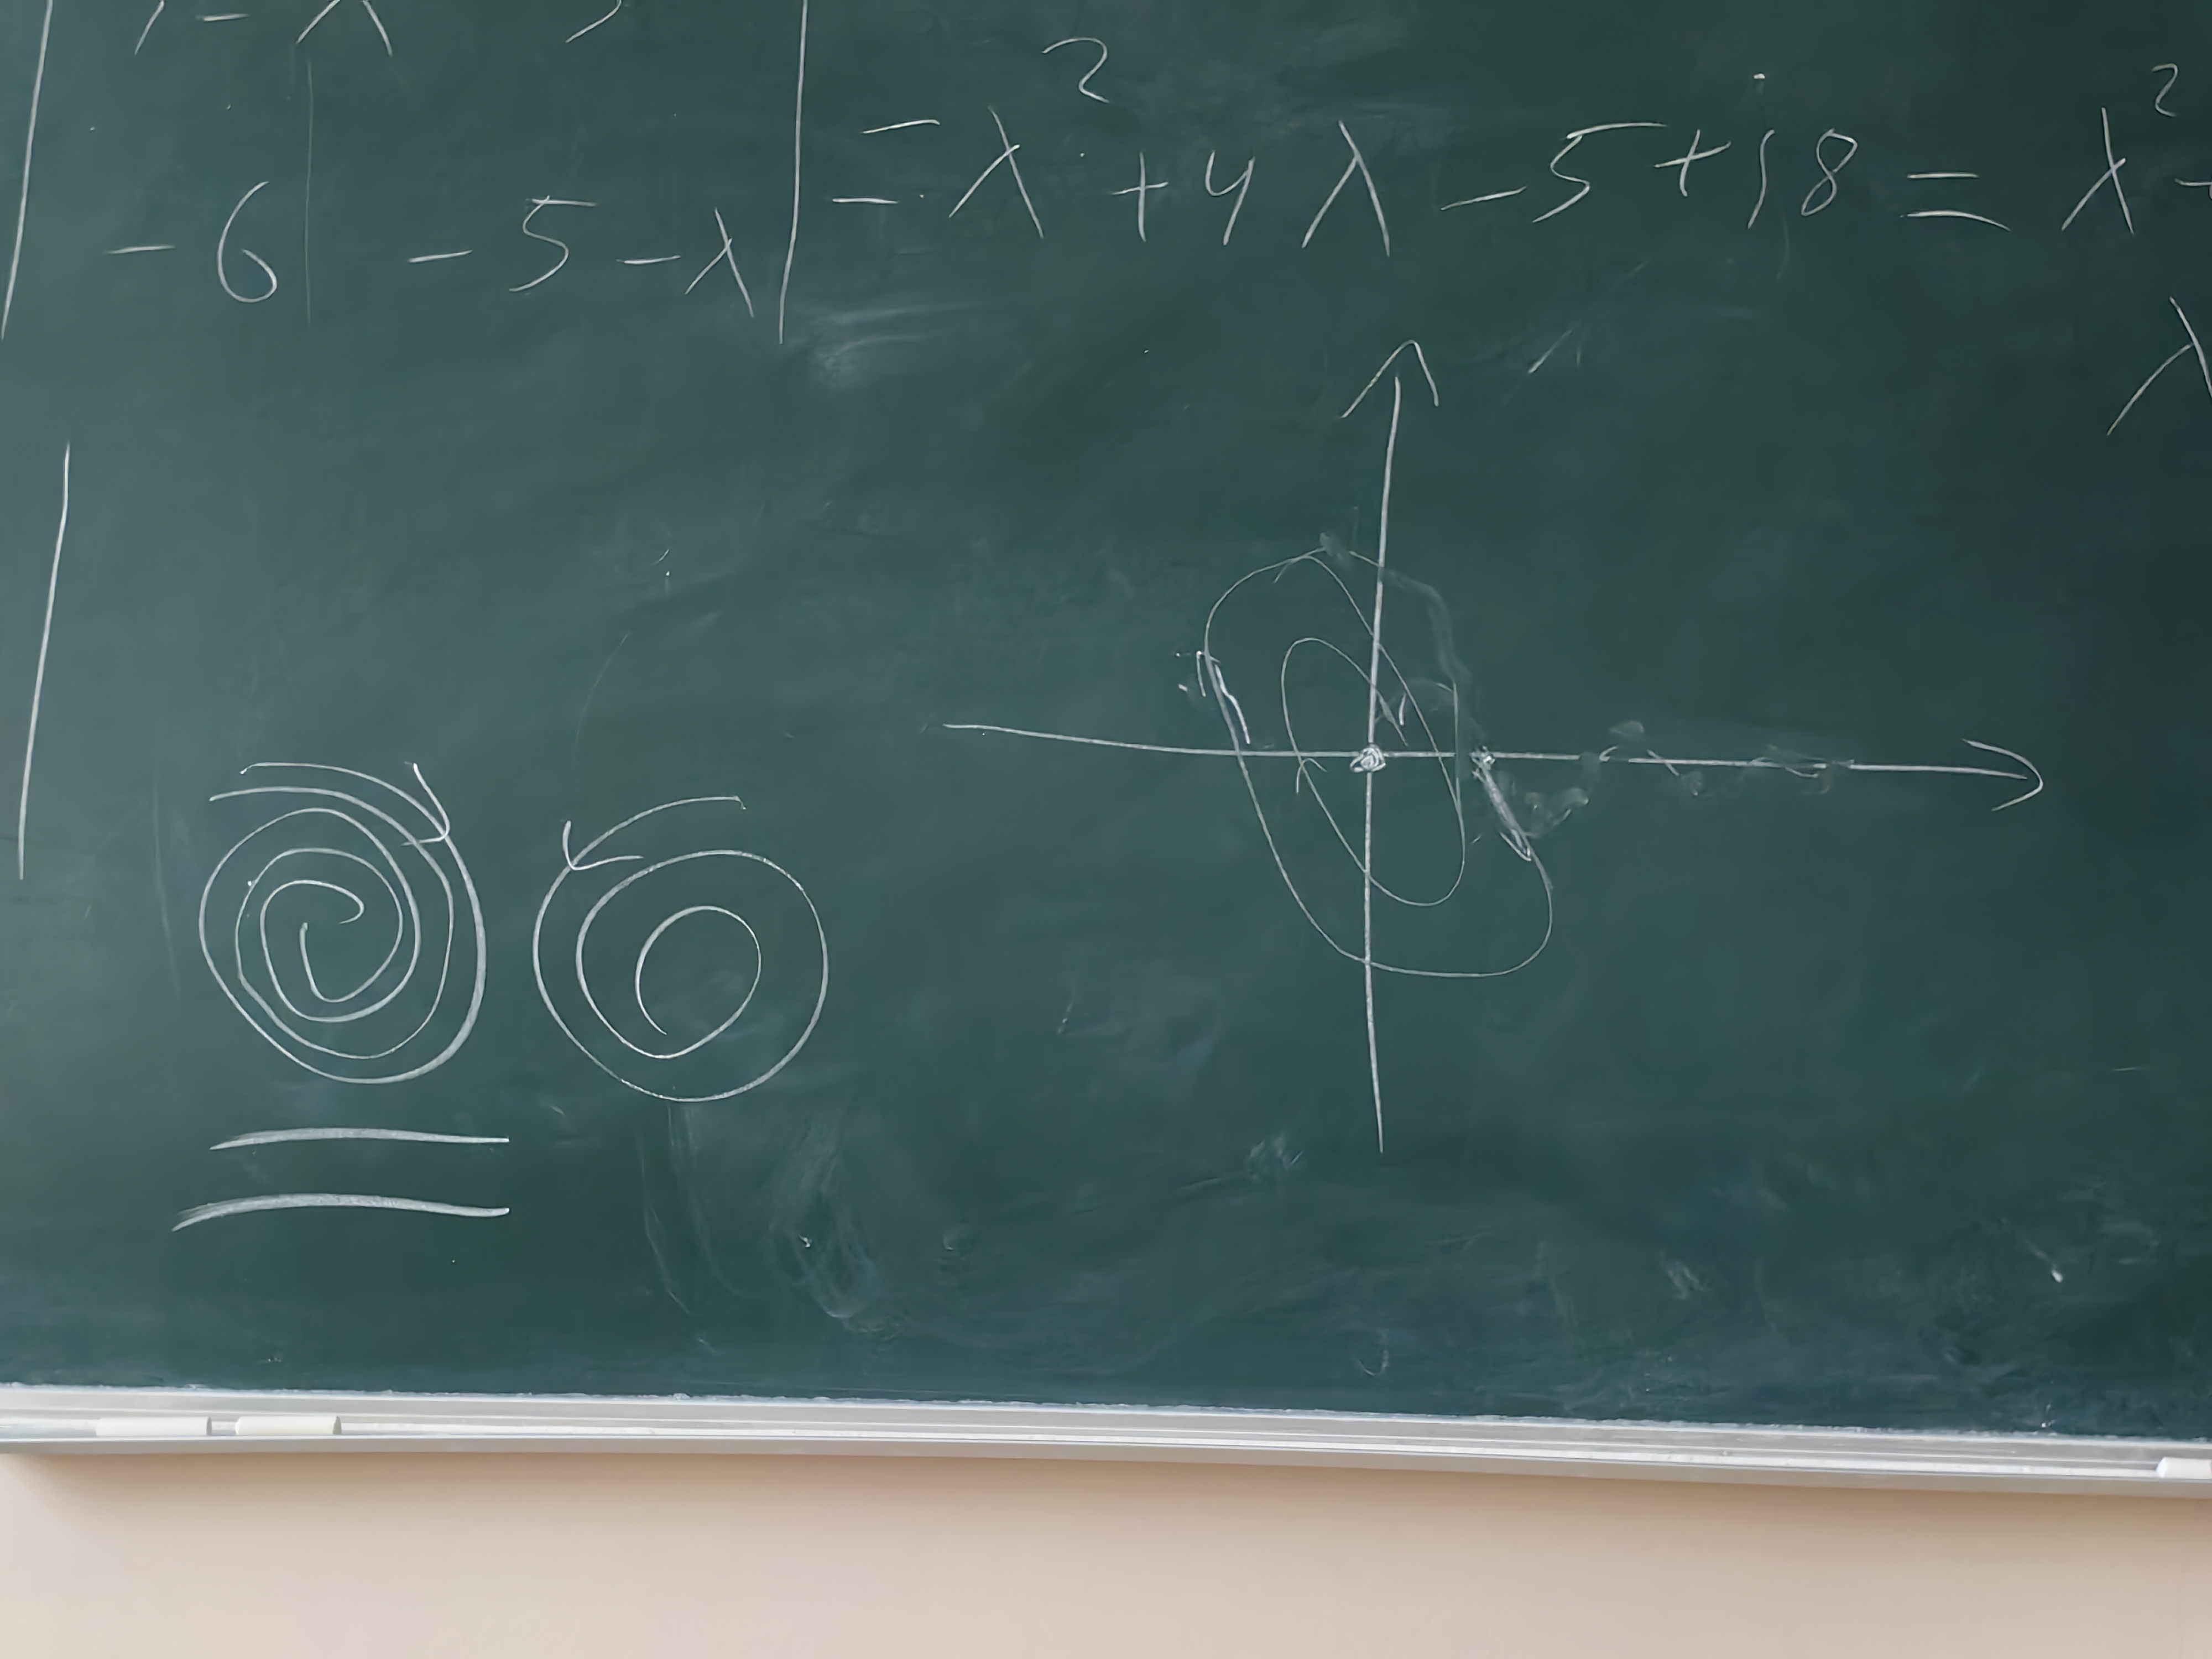 1 - λ 3
-6 -5-λ = λ² + 4λ - 5 + 18 = λ²
λ